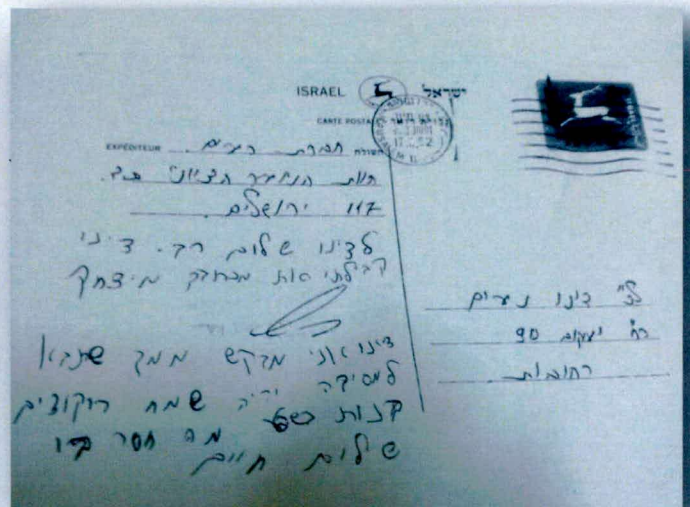 ISRAEL ישראל
CARTE POSTALE דואר
EXPÉDITEUR חברת השולח
חוות הנוער הציוני ת.ד.
117 ירושלים
לדינו שלום רב. דינו
קיבלתי את מכתבך מיצחק
דינו אני מבקש ממך שתבא
למסיבה יהיה שמח רוקודים
בנות מה חסר בו
שלום חיים
לכ' דינו נעים
רח' יעקוב 90
רחובות